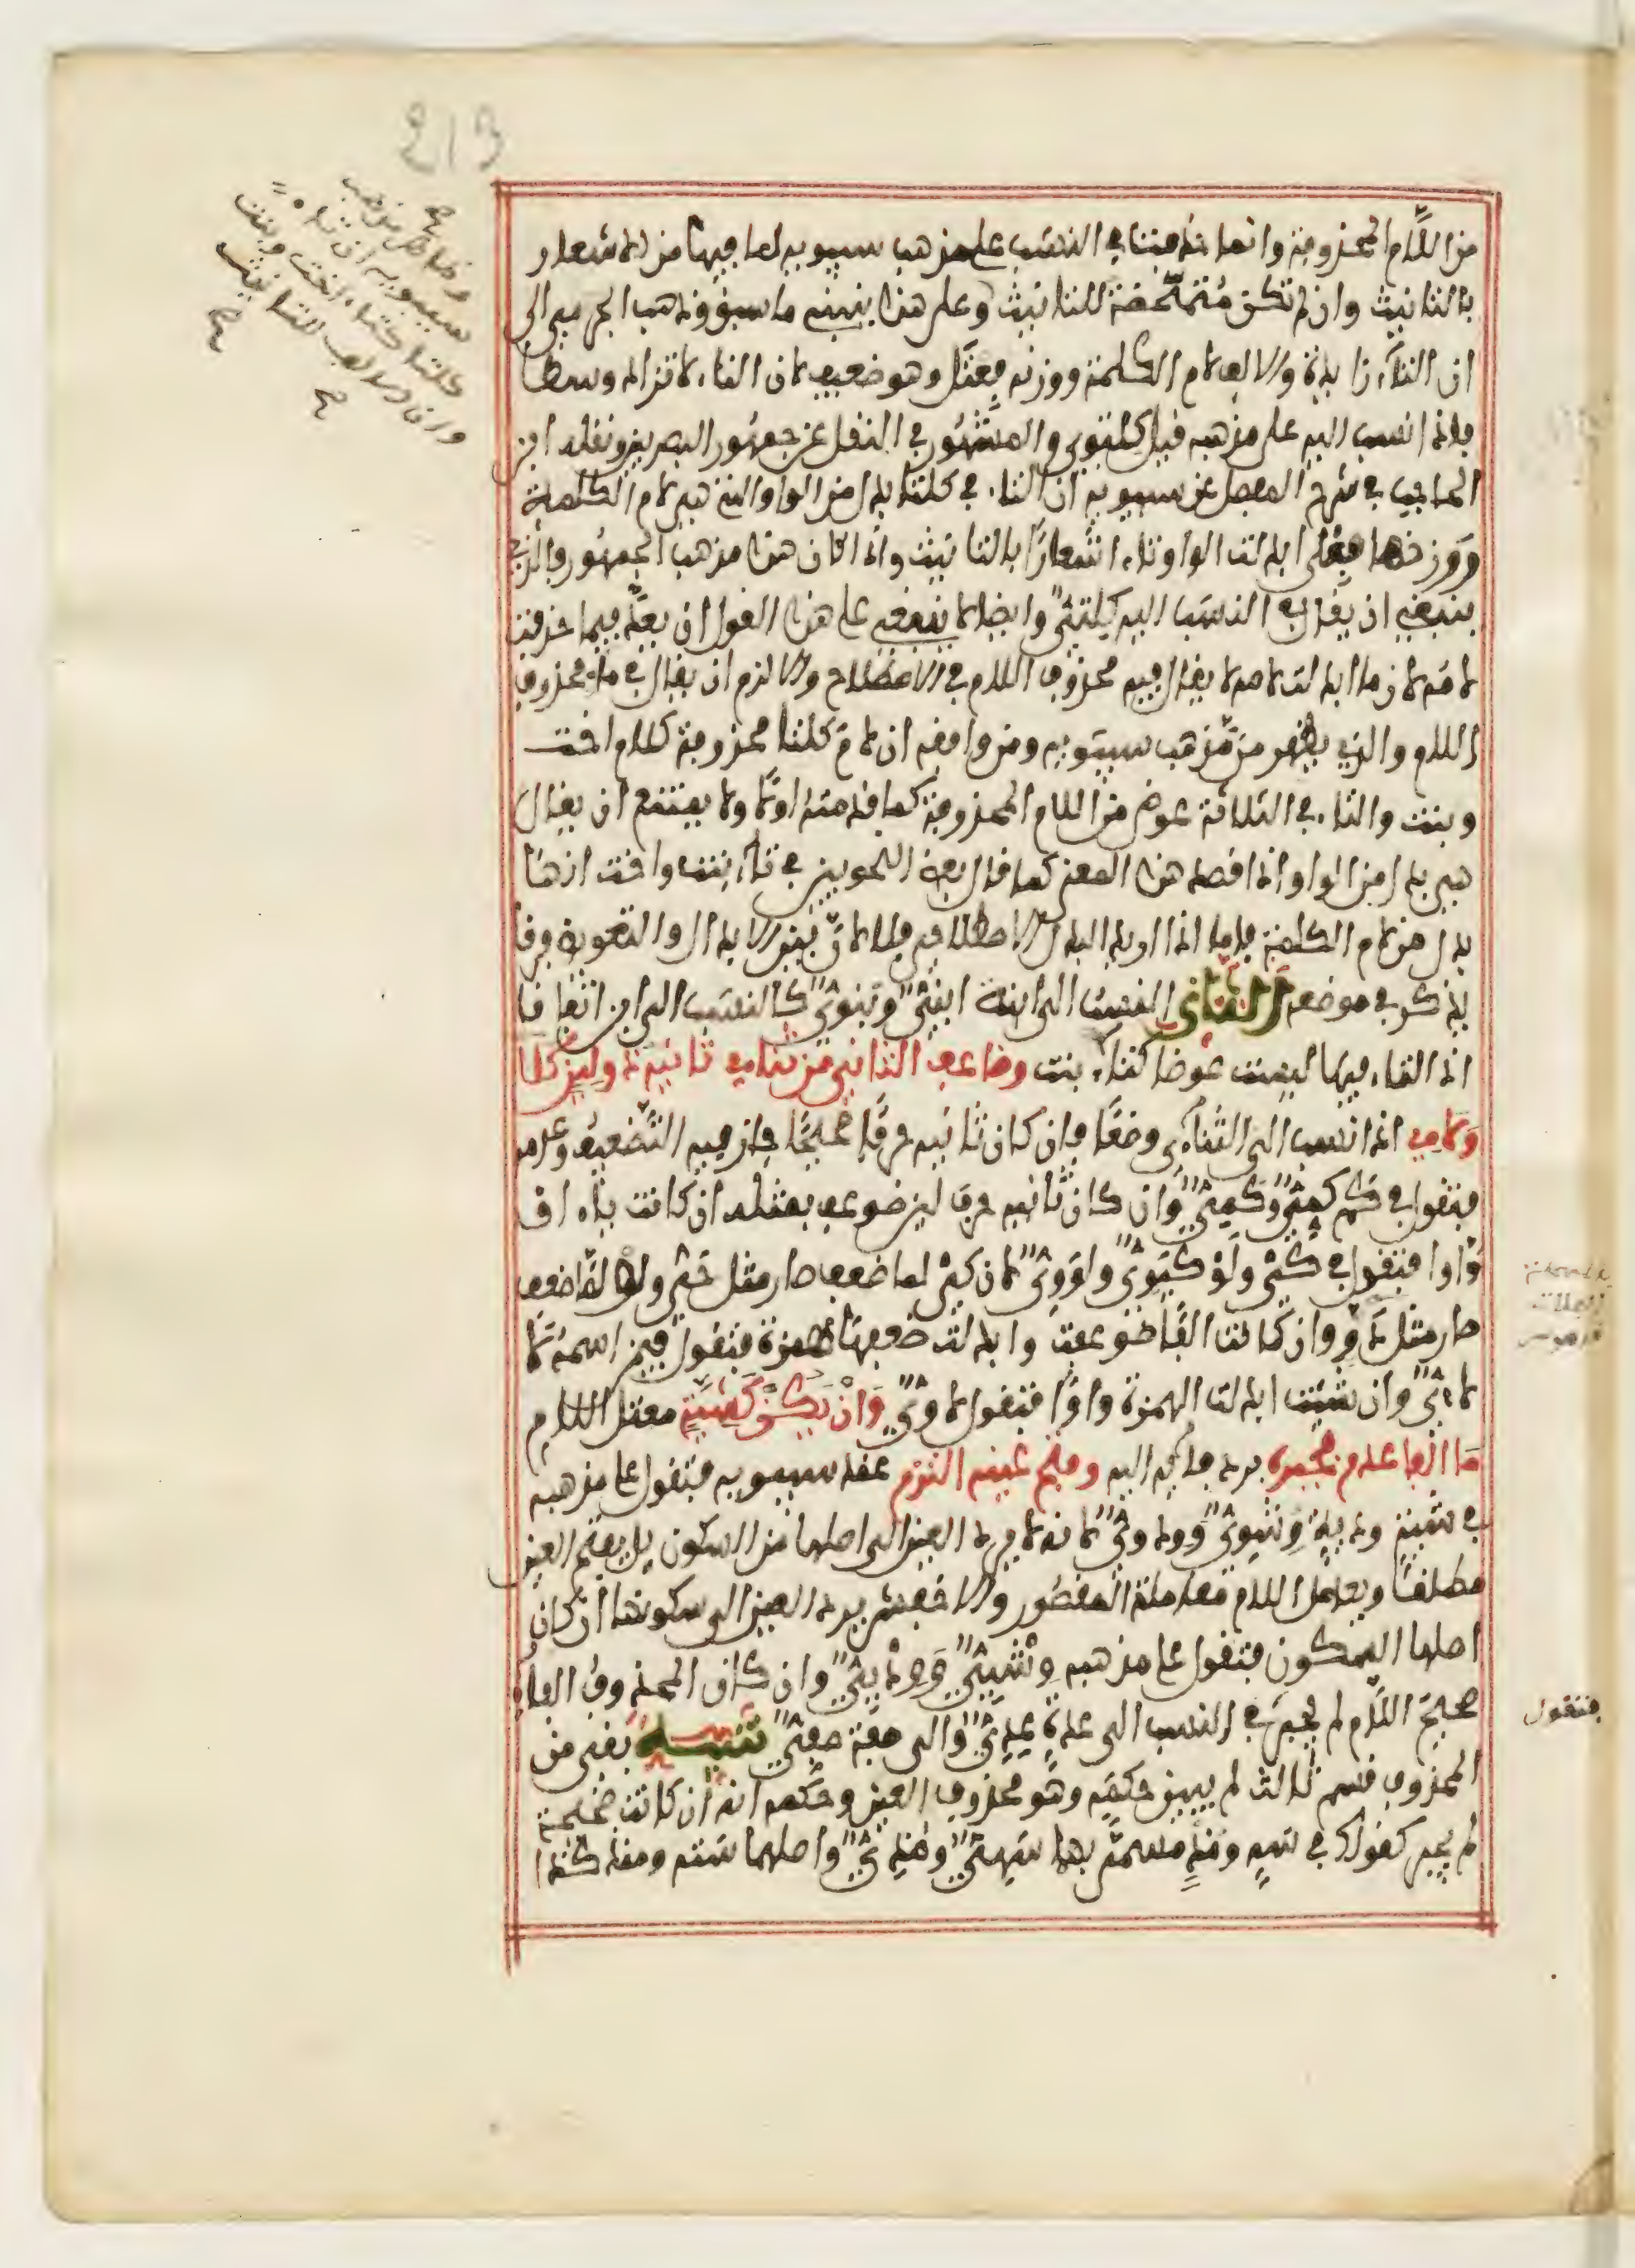 من اللام المحذوفة وانما حذفت في النسب على مذهب سيبويه لما فيها من الاشعار
بالتانيث وان لم تكن متمحضة للتانيث وعلى هذا ينبني ما سبق وذهب الجرمي الى
ان التاء زايدة والالف لام الكلمة ووزنه فعتل وهو ضعيف لان التاء لا تزاد وسطا
فاذا نسب اليه على مذهبه قيل كلتوي والمشهور في النقل عن جمهور البصريين ونقله ابن
الحاجب في شرح المفصل عن سيبويه ان التاء في كلتا بدل من الواو التي هي لام الكلمة
ووزنها فعلى ابدلت الواو تاء اشعارا بالتانيث واذا كان هذا مذهب الجمهور فالذي
ينبغي ان يقال في النسب اليه كلتيّ وايضا لا ينبغي على هذا القول ان يعد فيما حذفت
لامه لان ما ابدلت لامه لا يقال فيه محذوف اللام في الاصطلاح والا لزم ان يقال في ماء محذوف
اللام والذي يظهر من مذهب سيبويه ومن وافقه ان لام كلتا محذوفة كلام اخت
وبنت والتاء في الثلاثة عوض من اللام المحذوفة كما قدمته اولا ولا يمتنع ان يقال
هي بدل من الواو اذا قصد هذا المعنى كما قال بعض النحويين في تاء بنت واخت انها
بدل من لام الكلمة فاما اذا اريد البدل الاصطلاحي فلا لان بين الابدال والتعويض فرقا
يذكر في موضعه الثاني النسب الى ابنة ابنيّ وبنويّ كالنسب الى ابن اتفاقا
اذ التاء فيها ليست عوضا كتاء بنت وضاعف الثاني من ثنائي ثانيه ذو لين كلا
ولاءي اذا نسب الى الثنائي وضعا فان كان ثانيه حرفا صحيحا جاز فيه التضعيف وعدمه
فتقول في كم كميّ وكمّيّ وان كان ثانيه حرف لين ضوعف بمثله ان كانت ياء او
واوا فتقول في كي ولو كيويّ ولوويّ لان كي لما ضعف صار مثل حي ولو لما ضعف
صار مثل دوّ وان كانت الفا ضوعفت وابدلت ضعفها همزة فتقول فيمن اسمه لا
لاءيّ وان شئت ابدلت الهمزة واوا فتقول لاويّ وان يكن كشية معتل اللام
ما الفا عدم فجبره برد فائه اليه وفتح عينه التزم عند سيبويه فتقول على مذهبه
في شية ودية وشويّ وودويّ لانه لا يرد العين الى اصلها من السكون بل يفتح العين
مطلقا ويعامل اللام معاملة المقصور والاخفش يرد العين الى سكونها ان كان
اصلها السكون فتقول على مذهبه وشييّ ووديّيّ وان كان المحذوف الفاء
صحيح اللام لم يجبر في النسب الى عدة عديّ والى صفة صفيّ تنبيه بقي من
المحذوف قسم ثالث لم يبين حكمه وهو محذوف العين وحكمه انه ان كانت صحيحة
لم يجبر كقولك في سه ومذ مسمى بها سهيّ ومذيّ واصلهما سته ومنذ كذا
وظاهر مذهب
سيبويه ان تاء
كلتا كتاء اخت وبنت
وان الالف للتانيث
صح
فتقول